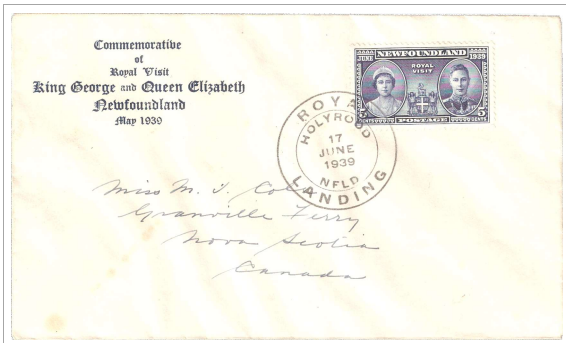 Commemorative
of
Royal Visit
King George and Queen Elizabeth
Newfoundland
May 1939
JUNE NEWFOUNDLAND 1939
ROYAL VISIT
5 CENTS POSTAGE 5 CENTS
ROYAL
HOLYROOD
17
JUNE
1939
NFLD
LANDING
Miss M. I.
Granville Ferry
Nova Scotia
Canada